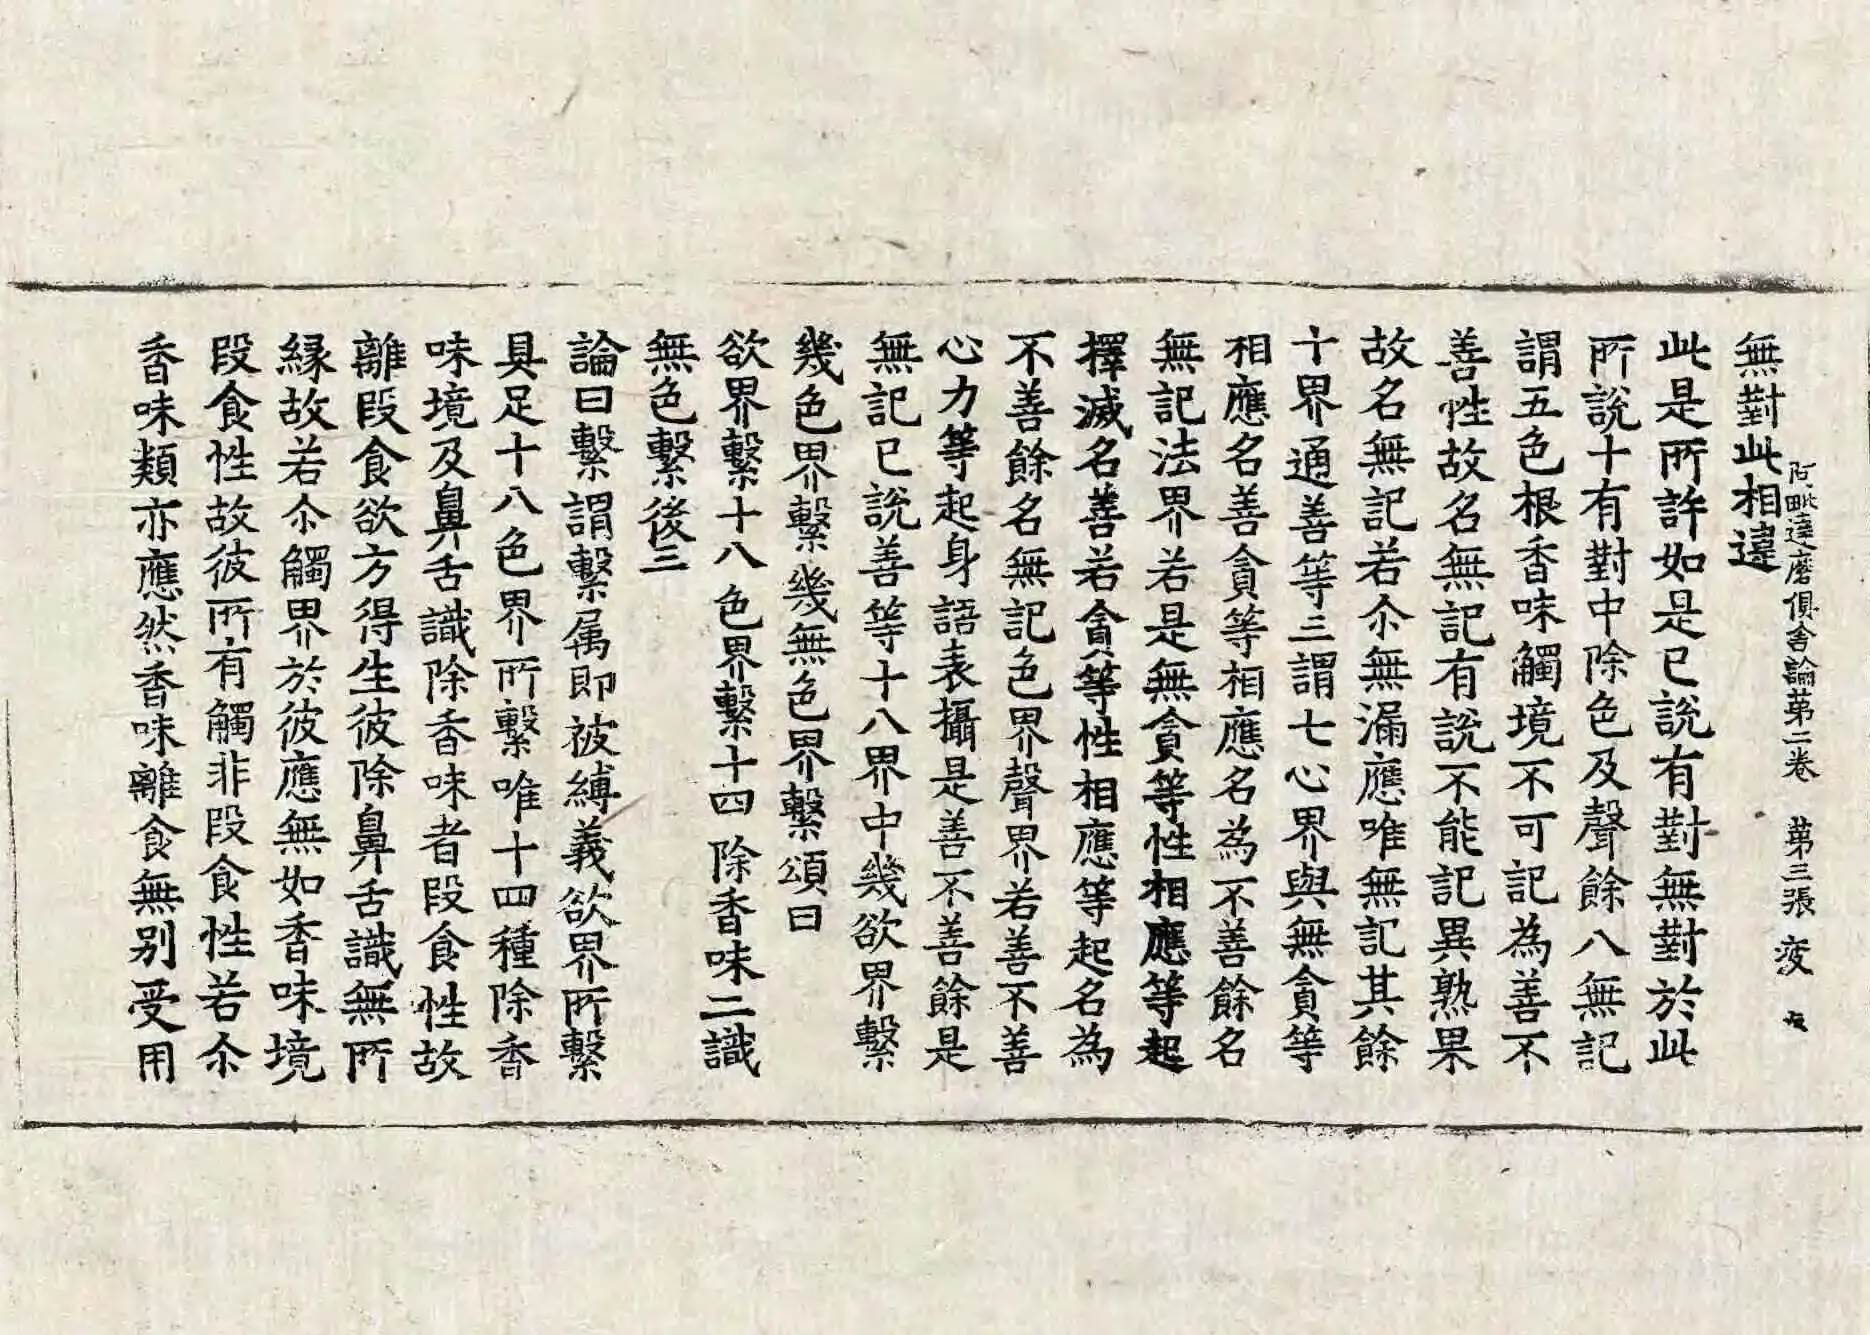 無對此相違
阿毗達磨俱舍論第二卷　第三張　疲
此是所許如是已說有對無對於此
所說十有對中除色及聲餘八無記
謂五色根香味觸境不可記為善不
善性故名無記有說不能記異熟果
故名無記若尒無漏應唯無記其餘
十界通善等三謂七心界與無貪等
相應名善貪等相應名為不善餘名
無記法界若是無貪等性相應等起
擇滅名善若貪等性相應等起名為
不善餘名無記色界聲界若善不善
心力等起身語表攝是善不善餘是
無記已說善等十八界中幾欲界繫
幾色界繫幾無色界繫頌曰
欲界繫十八　色界繫十四　除香味二識
無色繫後三
論曰繫謂繫属即被縛義欲界所繫
具足十八色界所繫唯十四種除香
味境及鼻舌識除香味者段食性故
離段食欲方得生彼除鼻舌識無所
緣故若尒觸界於彼應無如香味境
段食性故彼所有觸非段食性若尒
香味類亦應然香味離食無別受用